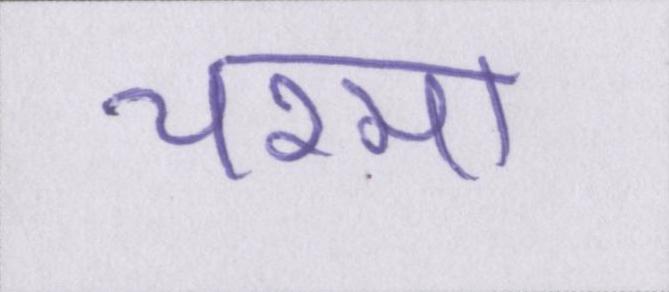 चश्मा